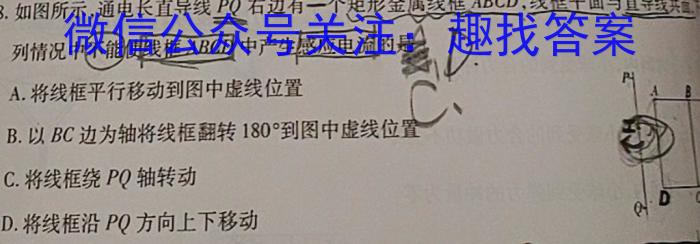 8. 如图所示,通电长直导线 PQ 右边有一个矩形金属线框 ABCD,线框平面与直导线共面
微信公众号关注：趣找答案
列情况中不能使线框 ABCD 中产生感应电流的是
A. 将线框平行移动到图中虚线位置
B. 以 BC 边为轴将线框翻转 180°到图中虚线位置
C. 将线框绕 PQ 轴转动
D. 将线框沿 PQ 方向上下移动
C
P
A B
I
D
Q